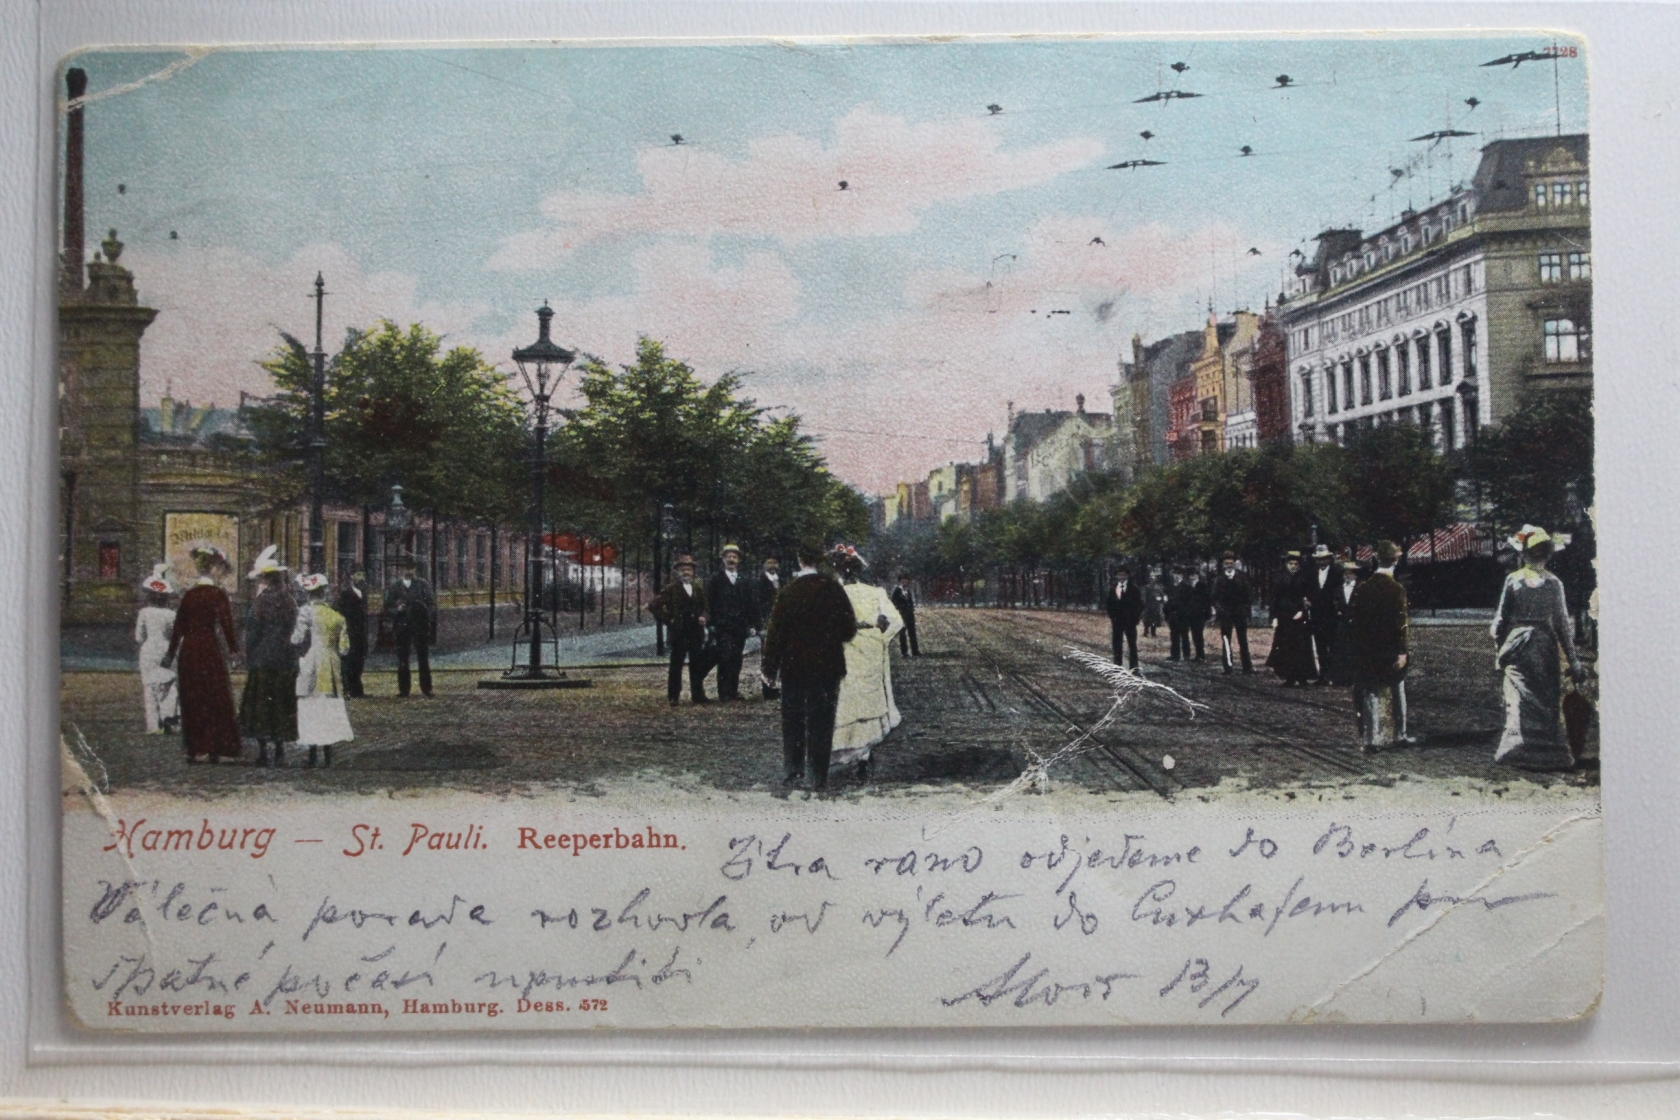 7728
Hamburg — St. Pauli. Reeperbahn.
Zítra ráno odjedeme do Berlína
Válečná porada rozhodla, od výletu do Cuxhafenu pro
špatné počasí upustiti
Alois 13/7
Kunstverlag A. Neumann, Hamburg. Dess. 572